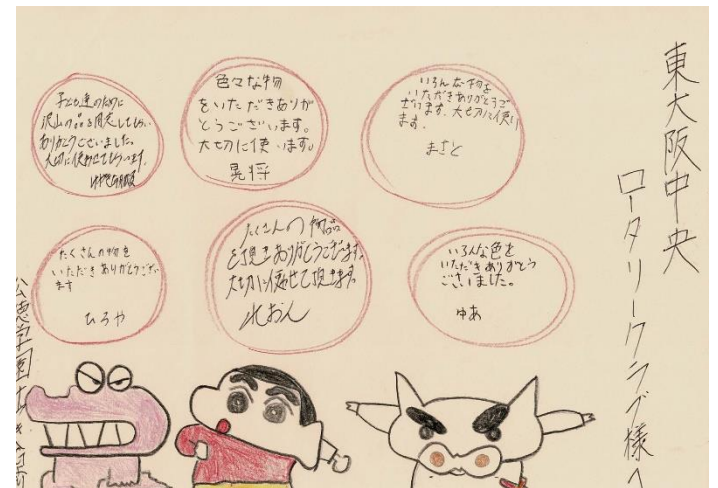 東大阪中央
ロータリークラブ様へ
いろんな物を
いただきありがとうご
ざいます。大切に使い
ます。
まさと
色々な物
をいただきありが
とうございます。
大切に使います。
晃将
子ども達のために
沢山の品を用意してもらい
ありがとうございました。
大切に使わせてもらいます。
いろんな色を
いただきありがとう
ございました。
ゆあ
たくさんの物品
を頂きありがとうございます。
大切に使わせて頂きます。
れおん
たくさんの物を
いただきありがとうござい
ます
ひろや
公徳学園